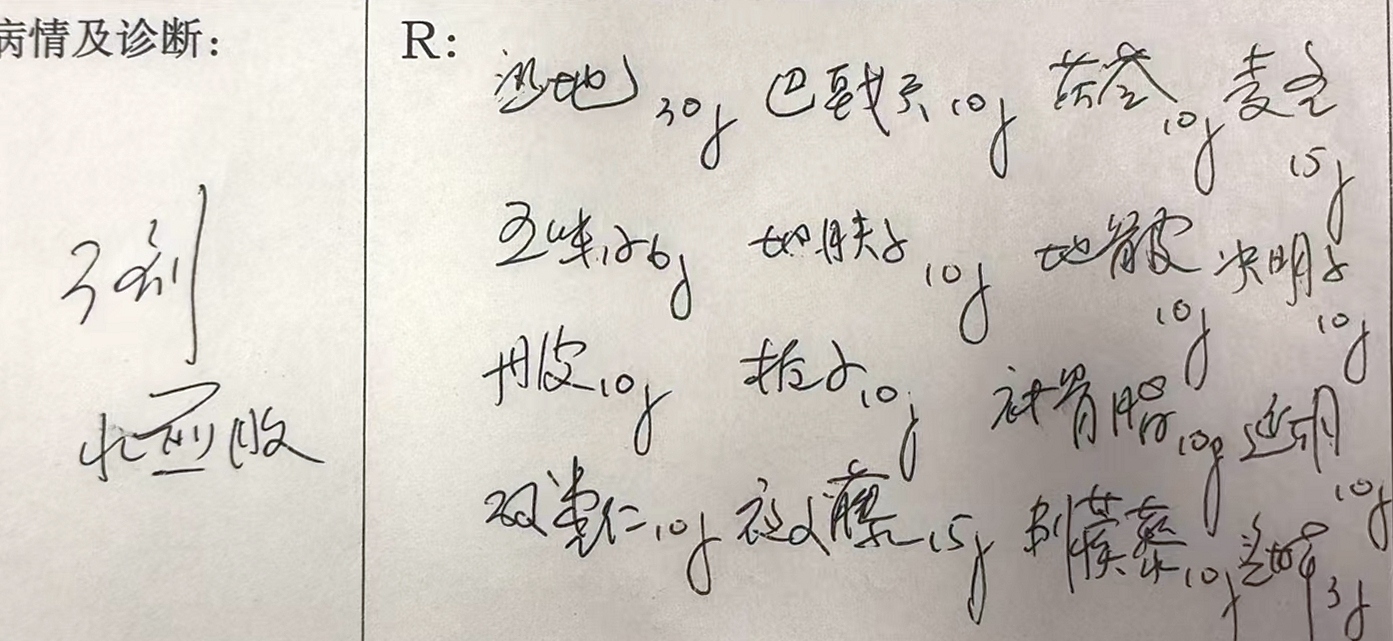 病情及诊断：
3剂
水煎服
R：
熟地30g 巴戟天10g 茯苓10g 麦冬15g
五味子6g 地肤子10g 地骨皮10g 决明子10g
丹皮10g 栀子10g 补骨脂10g 远志10g
10g 夜交藤15g 刺蒺藜10g 3g